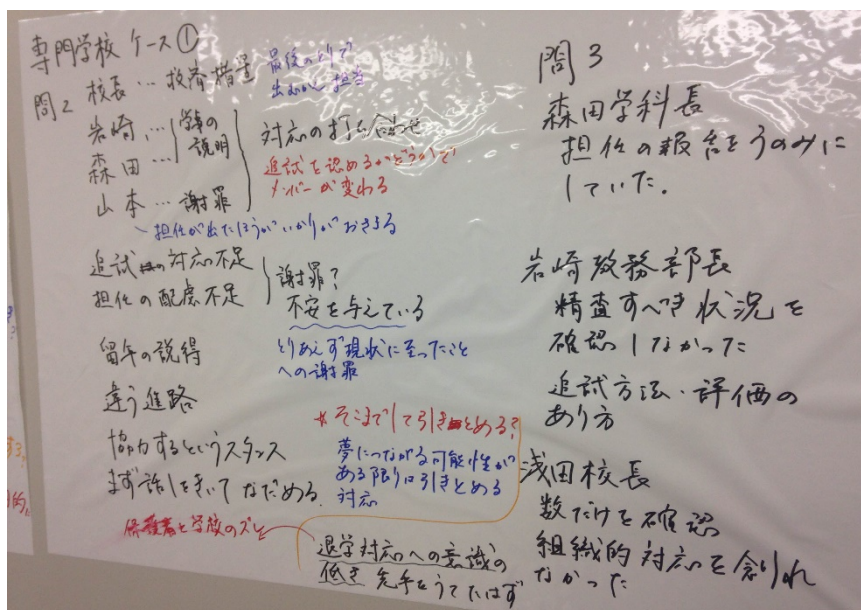 専門学校 ケース①
問2 校長… 救済措置
最後のとりで
出るか 担当
岩崎… 学年の
森田… 説明
山本… 謝罪
対応の打ち合わせ
追試を認めるかどうかで
メンバーが変わる
担任が出たほうがいかりがおさまる
追試 対応不足
担任の配慮不足
謝罪?
不安を与えている
とりあえず現状に至ったこと
への謝罪
留年の説得
違う進路
協力するというスタンス
まず話しをきいてなだめる
保護者と学校のズレ
*そこまでして引きとめる?
夢につながる可能性が
ある限りは引きとめる
対応
退学対応への意識の
低さ 先手をうてたはず
問3
森田学科長
担任の報告をうのみに
していた.
岩崎教務部長
精査すべき状況を
確認しなかった
追試方法・評価の
あり方
浅田校長
数だけを確認
組織的対応を
なかった